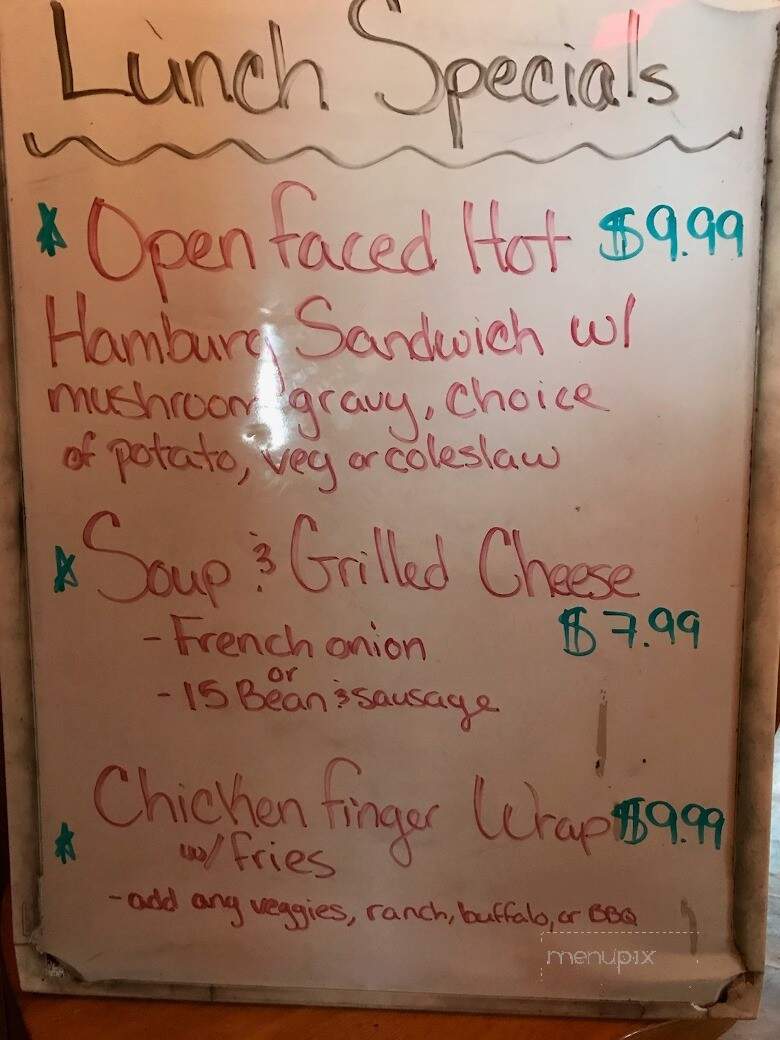 Lunch Specials
* Open faced Hot $9.99
Hamburg Sandwich w/
mushroom gravy, choice
of potato, veg or coleslaw
* Soup & Grilled Cheese
- French onion $7.99
or
- 15 Bean & sausage
Chicken finger Wrap $9.99
* w/ fries
- add any veggies, ranch, buffalo, or BBQ
menupix